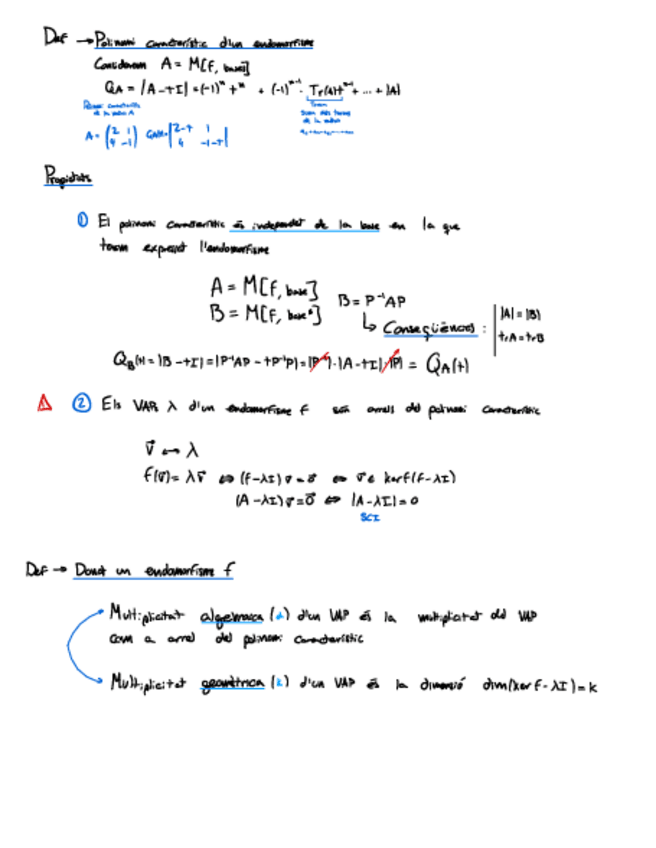 Def → Polinomi característic d'un endomorfisme
Considerem A = M[f, bases]
QA = |A - tI| = (-1)ⁿ tⁿ + (-1)ⁿ⁻¹ · Tr(A)tⁿ⁻¹ + ... + |A|
Polinomi característic
de la matriu A
Suma dels termes
de la
A = (2 1 / 4 -1) |2-t 1 / 4 -1-t|
Propietats
① El polinomi característic és independent de la base en la que
tenim expressat l'endomorfisme
A = M[f, base]
B = M[f, base'] B = P⁻¹AP
↳ Conseqüències : |A| = |B|
trA = trB
QB(t) = |B - tI| = |P⁻¹AP - tP⁻¹P| = |P⁻¹| · |A - tI| · |P| = QA(t)
⚠ ② Els VAPs λ d'un endomorfisme f són arrels del polinomi característic
v⃗ ↔ λ
f(v⃗) = λv⃗ ⇔ (f-λI)v⃗ = 0⃗ ⇔ v⃗ ∈ kerf(f-λI)
(A-λI)v⃗ = 0⃗ ⇔ |A-λI| = 0
SCI
Def → Donat un endomorfisme f
Multiplicitat algebraica (α) d'un VAP és la multiplicitat del VAP
com a arrel del polinomi característic
Multiplicitat geomètrica (k) d'un VAP és la dimensió dim(ker f - λI) = k